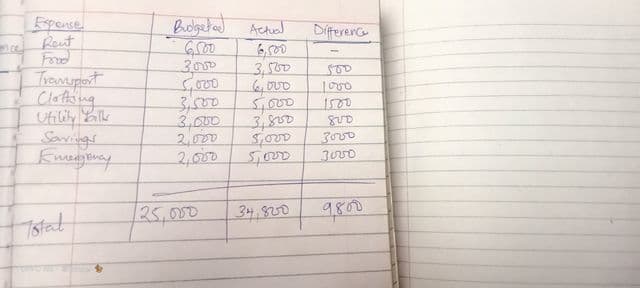 Expense Budgeted Actual Difference
Rent 6,500 6,500 -
Food 3000 3,500 500
Transport 5,000 6,000 1000
Clothing 3,500 5,000 1500
Utility Bills 3,000 3,800 800
Savings 2,000 5,000 3000
Emergency 2,000 5,000 3000
Total 25,000 34,800 9,800